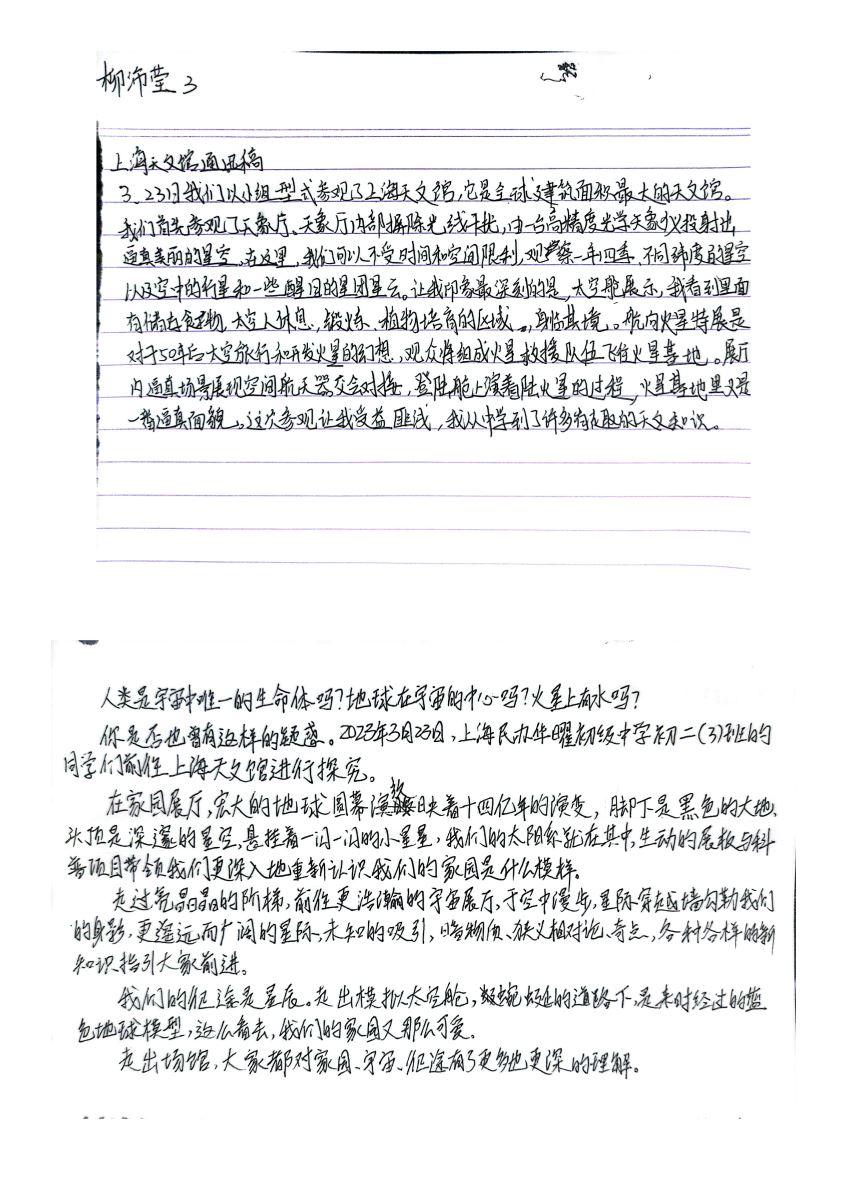 柳沛莹 3
上海天文馆通讯稿
3.23日我们以小组型式参观了上海天文馆,它是全球建筑面积最大的天文馆。
我们首先参观了天象厅、天象厅内部摒除光线干扰,由一台高精度光学天象仪投射出
逼真美丽的星空。在这里,我们可以不受时间和空间限制,观察一年四季、不同纬度的星空
以及空中的行星和一些醒目的星团星云。让我印象最深刻的是,太空舱展示,我看到里面
有储存食物,太空人休息,锻炼、植物培育的区域。,身临其境。航向火星特展是
对于50年后太空旅行和开发火星的幻想,观众将组成火星救援队伍飞往火星基地。展厅
内逼真场景展现空间航天器交会对接,登陆舱上演着陆火星的过程,火星基地里又是
一番逼真面貌。这次参观让我受益匪浅,我从中学到了许多有趣的天文知识。
人类是宇宙中唯一的生命体吗?地球在宇宙的中心吗?火星上有水吗?
你是否也曾有这样的疑惑。2023年3月23日,上海民办华曜初级中学初二(3)班的
同学们前往上海天文馆进行探究。
在家园展厅,宏大的地球圆幕演放映着十四亿年的演变,脚下是黑色的大地,
头顶是深邃的星空,悬挂着一闪一闪的小星星,我们的太阳系就在其中,生动的展板与科
普项目带领我们更深入地重新认识我们的家园是什么模样。
走过亮晶晶的阶梯,前往更浩瀚的宇宙展厅,于空中漫步,星际穿越墙勾勒我们
的身影,更遥远而广阔的星际,未知的吸引,暗物质、狭义相对论、奇点,各种各样的新
知识指引大家前进。
我们的征途是星辰。走出模拟太空舱,蜿蜒的道路下,是来时经过的蓝
色地球模型,这么看去,我们的家园又那么可爱。
走出场馆,大家都对家园、宇宙、征途有了更多也更深的理解。